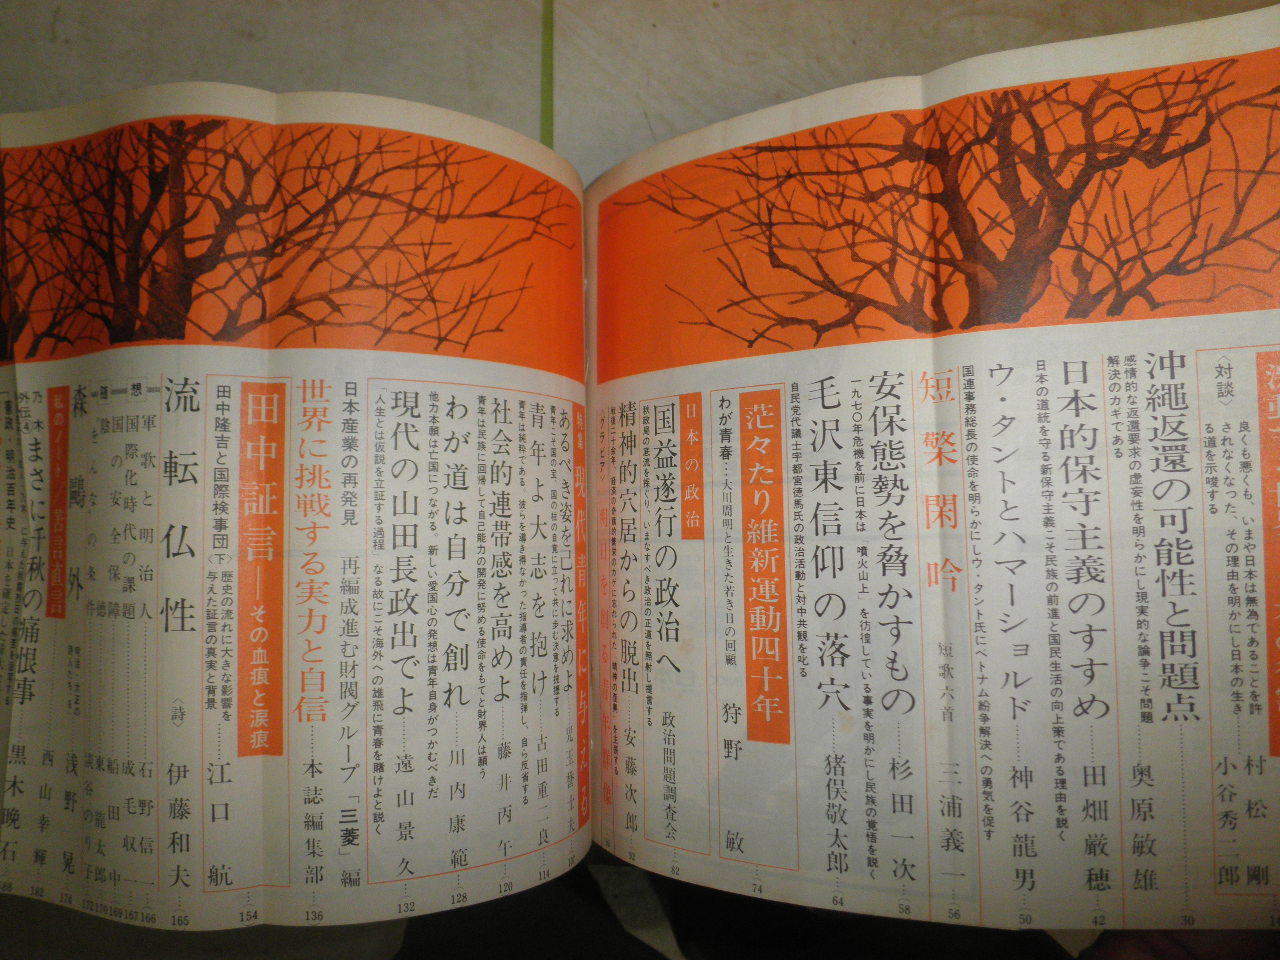 〈対談〉
良くも悪くも、いまや日本は無為であることを許
されなくなった、その理由を明らかにし日本の生き
る道を示唆する
村松剛
小谷秀二郎
沖縄返還の可能性と問題点
感情的な返還要求の虚妄性を明らかにし現実的な論争こそ問題
解決のカギである
奥原敏雄
30
日本的保守主義のすすめ
日本の道統を守る新保守主義こそ民族の前進と国民生活の向上策である理由を説く
田畑厳穂
42
ウ・タントとハマーショルド
国連事務総長の使命を明らかにしウ・タント氏にベトナム紛争解決への勇気を促す
神谷龍男
50
短檠閑吟
短歌六首
三浦義一
56
安保態勢を脅かすもの
一九七〇年危機を前に日本は 噴火山上 を彷徨している事実を明らかにし民族の覚悟を説く
杉田一次
58
毛沢東信仰の落穴
自民党代議士宇都宮徳馬氏の政治活動と対中共観を叱る
猪俣敬太郎
64
茫々たり維新運動四十年
わが青春…大川周明と生きた若き日の回顧
狩野敏
74
日本の政治
国益遂行の政治へ
政治問題調査会
82
精神的穴居からの脱出
安藤次郎
92
特集 現代青年に与える
あるべき姿を己れに求めよ
青年にこそ国の宝、国の柱の自覚に立って共に歩む決意を披瀝する
児玉誉士夫
青年よ大志を抱け
青年は純粋である。彼らを導き得なかった指導者の責任を指弾し、自ら反省する
古田重二良
114
社会的連帯感を高めよ
青年は民族に回帰して自己能力の開発に努める使命をもてと財界人は願う
藤井丙午
120
わが道は自分で創れ
他力本願は亡国につながる 新しい愛国心の発想は青年自身がつかむべきだ
川内康範
128
現代の山田長政出でよ
「人生とは仮説を立証する過程 なる故にこそ海外への雄飛に青春を賭けよと説く
遠山景久
132
日本産業の再発見 再編成進む財閥グループ「三菱」編
世界に挑戦する実力と自信
本誌編集部
136
田中証言―その血痕と涙痕
田中隆吉と国際検事団〈下〉
歴史の流れに大きな影響を
与えた証言の真実と背景
江口航
154
流転仏性
詩
伊藤和夫
165
随想
軍歌と明治人
石野信一
166
国際化時代の課題
成毛収一
167
国の安全保障
船田中
169
森鷗外
浅野晃
174
私のノート 苦言直言
西山幸輝
162
乃木外伝4
まさに千秋の痛恨事
黒木晩石